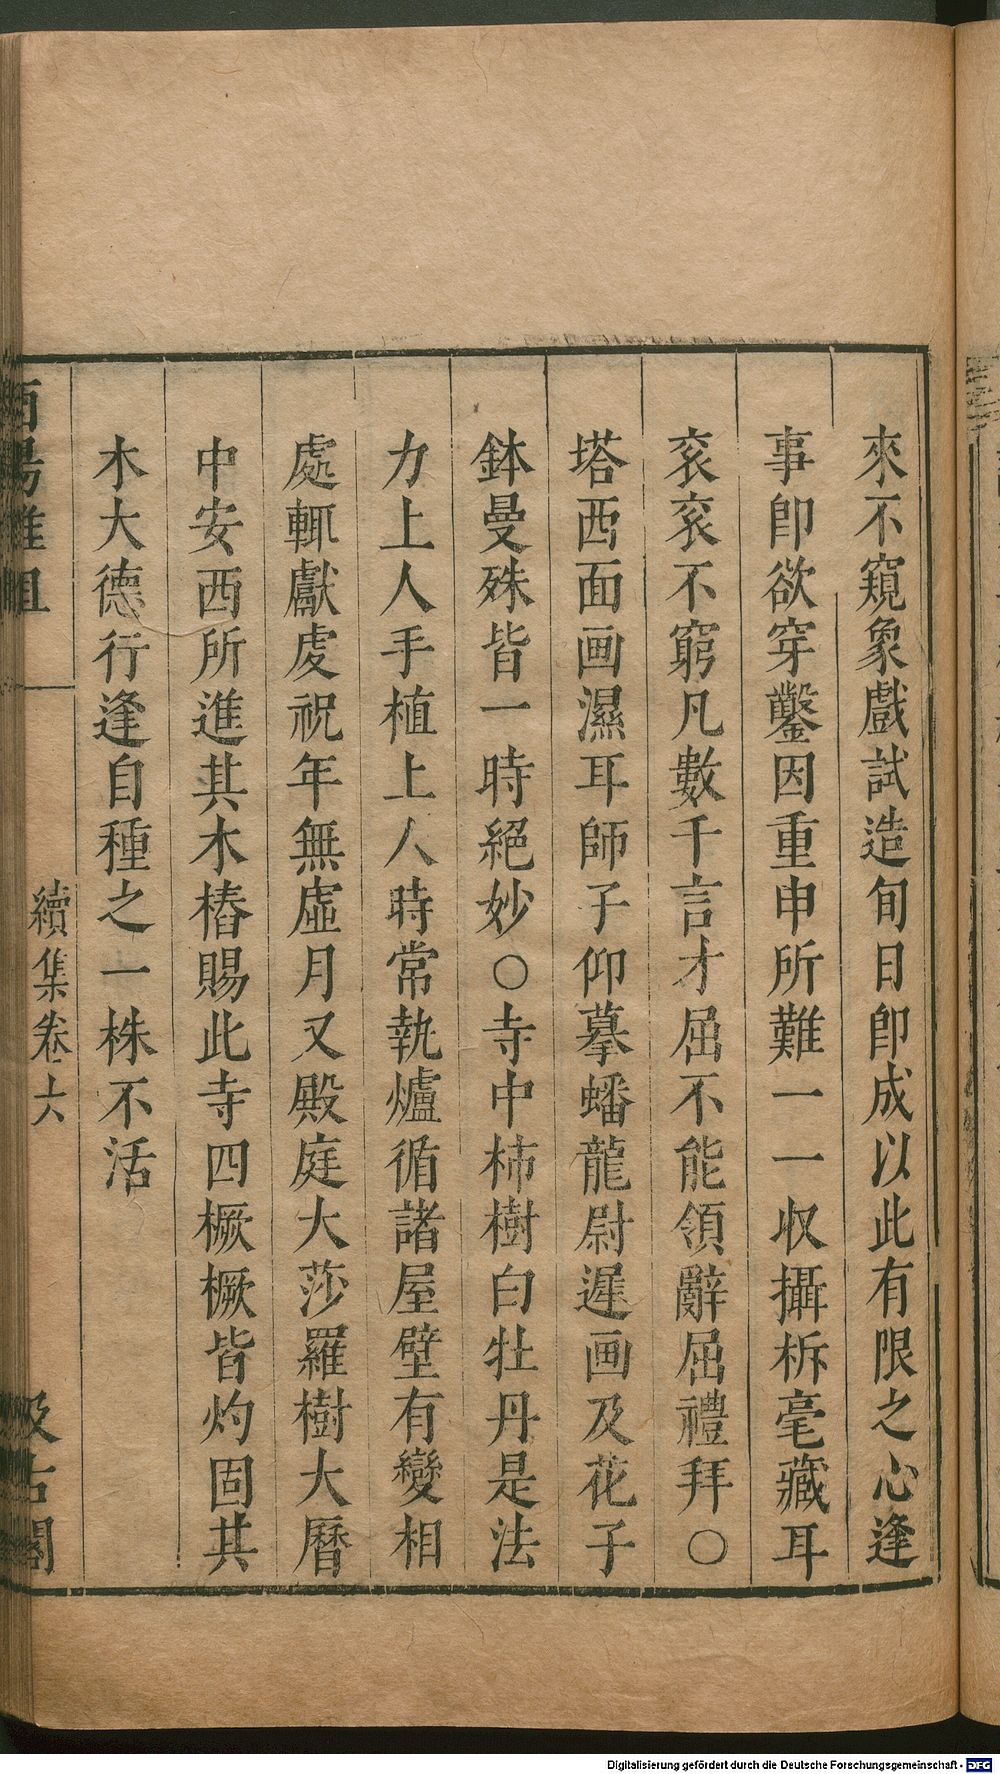 來不窺象戲試造旬日卽成以此有限之心逢
事卽欲穿鑿因重申所難一一收攝柝毫藏耳
衮衮不窮凡數千言才屈不能領辭屈禮拜○
塔西面画濕耳師子仰摹蟠龍尉遲画及花子
鉢曼殊皆一時絕妙○寺中柿樹白牡丹是法
力上人手植上人時常執爐循諸屋壁有變相
處輒獻虔祝年無虛月又殿庭大莎羅樹大曆
中安西所進其木樁賜此寺四橛橛皆灼固其
木大德行逢自種之一株不活
酉陽雜俎 續集卷六 汲古閣
Digitalisierung gefördert durch die Deutsche Forschungsgemeinschaft - DFG